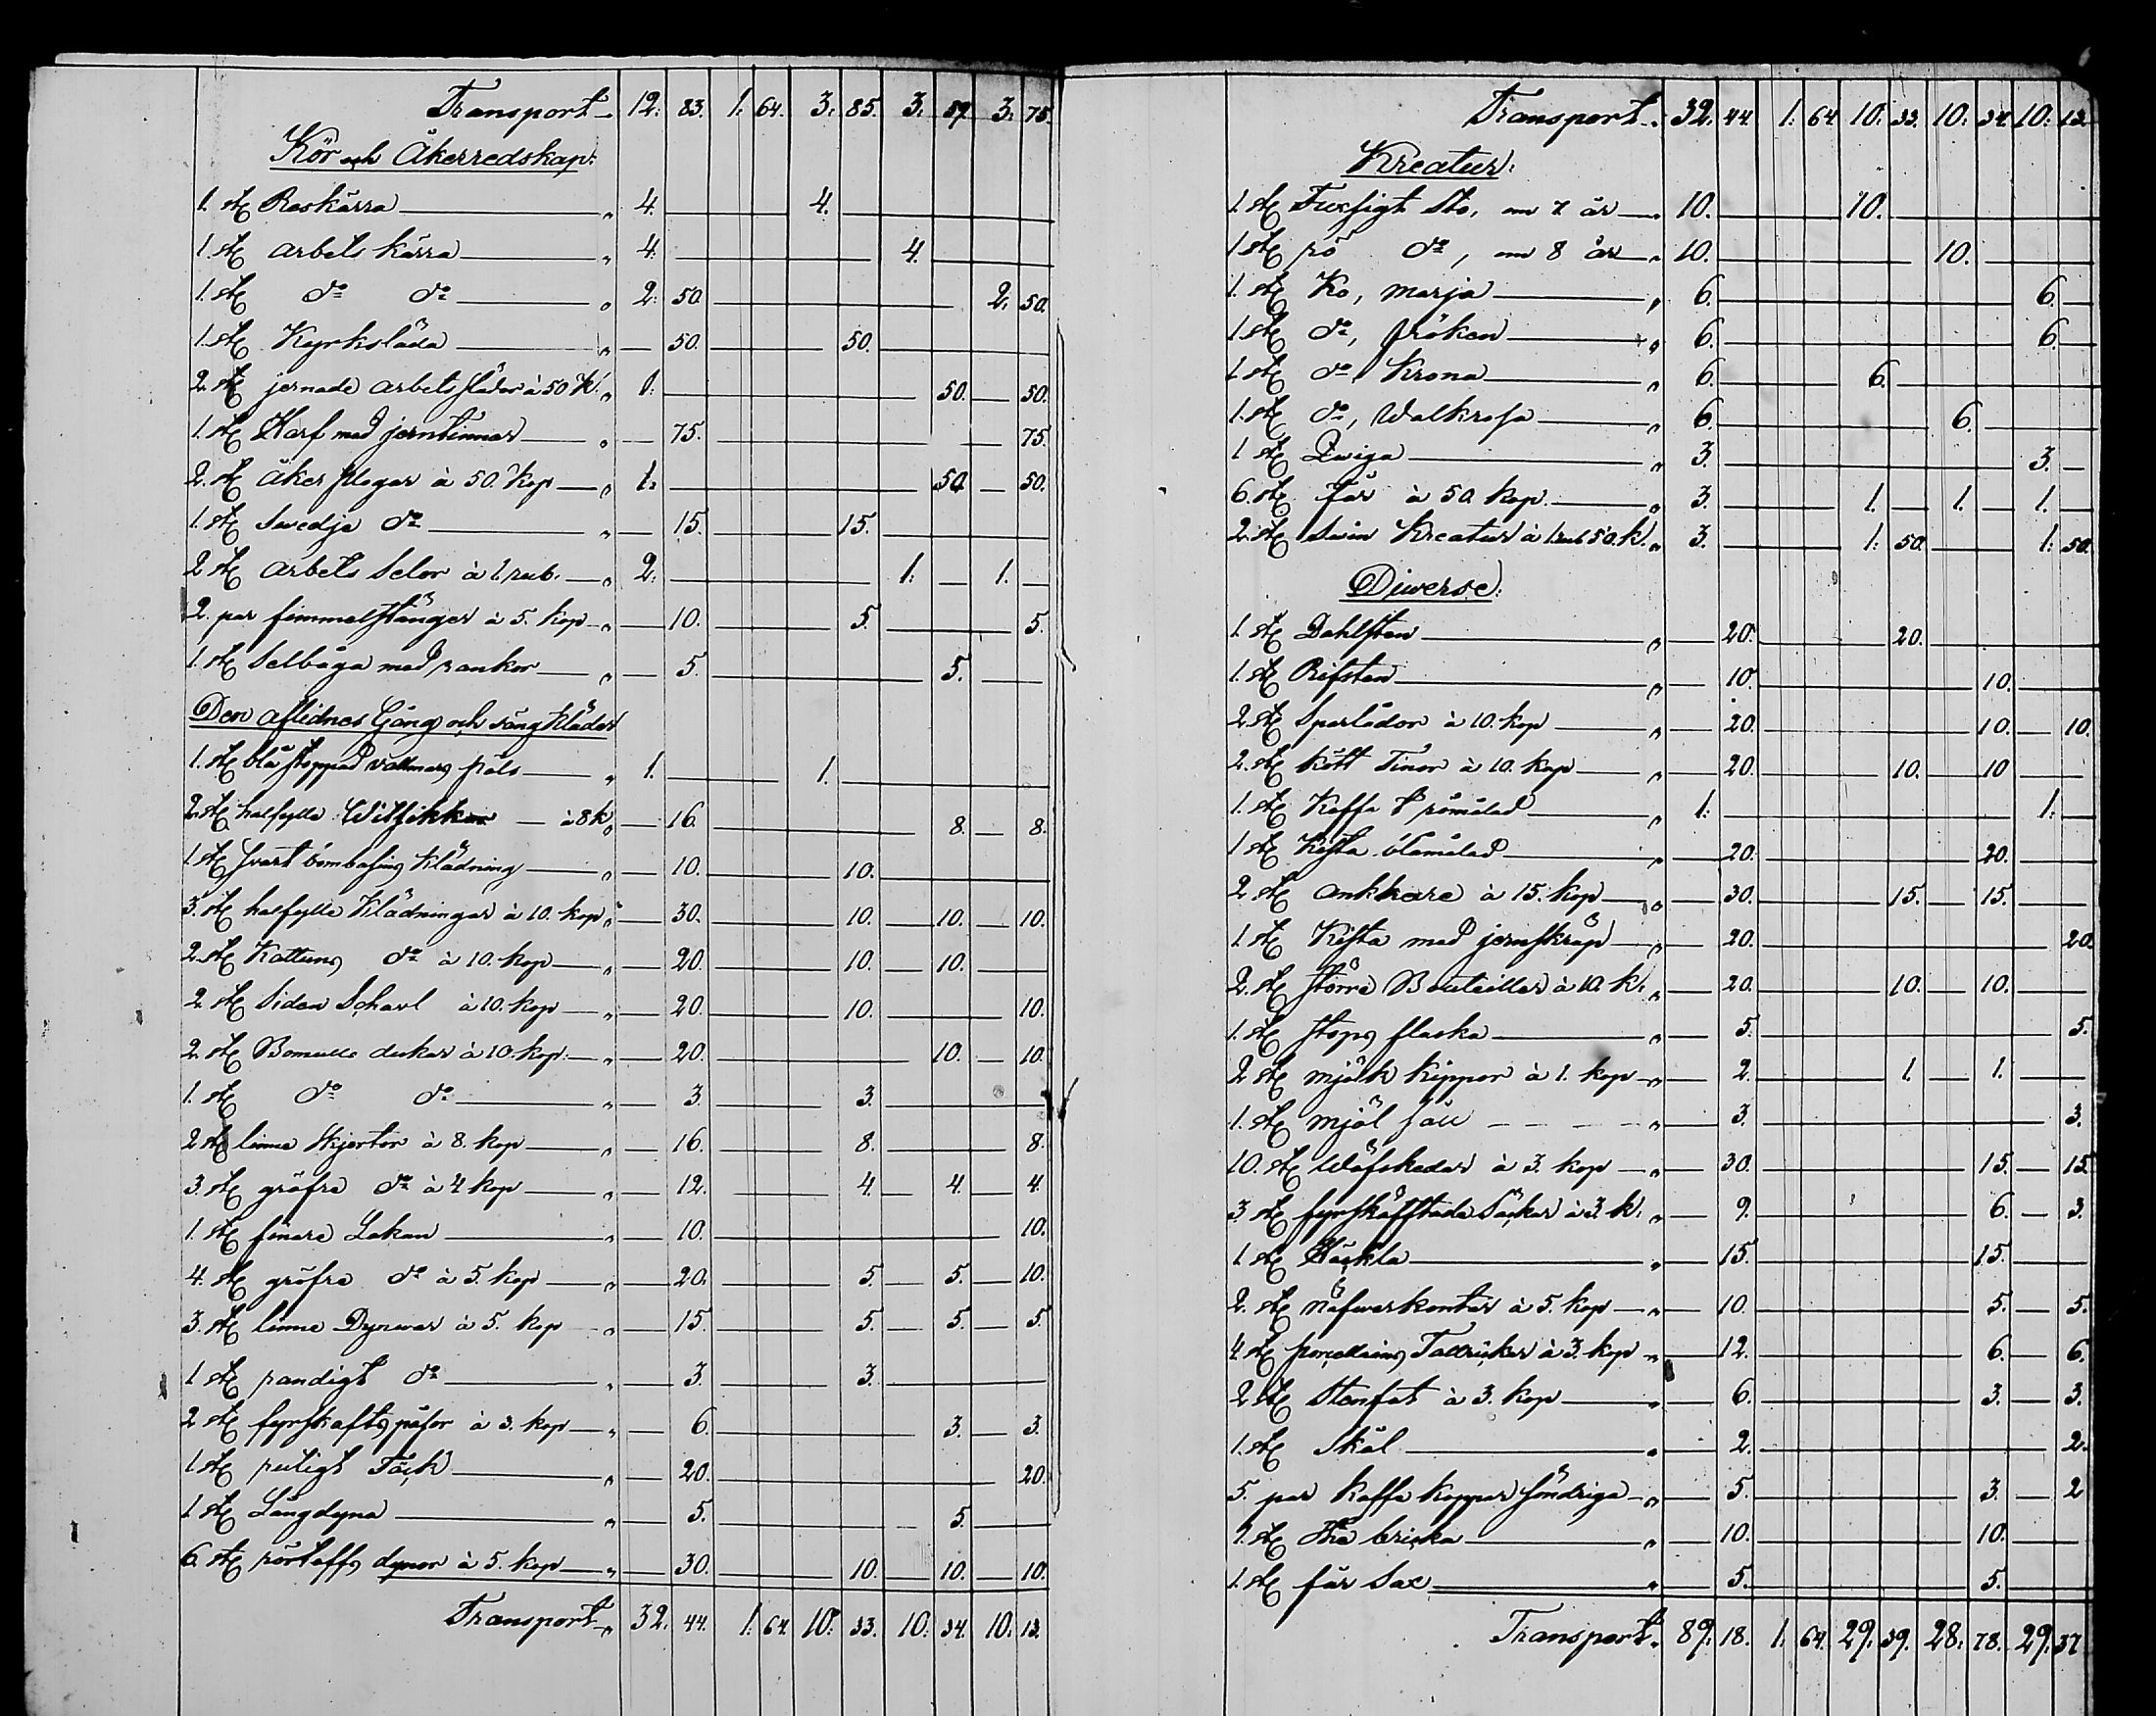 Transport 12: 83. 1. 64. 3: 85. 3: 59. 3: 75.
Kör och Åkerredskap:
1. st Roskärra „ 4. 4.
1. st arbets kärra „ 4. 4.
1. st do do „ 2: 50. 2: 50.
1. st Kyrksläda „ 50. 50.
2. st jernade arbets slädor à 50 K. „ 1. 50. 50.
1. st Harf med jerntinnar „ 75. 75.
2. st åker plogar à 50. kop „ 1. 50. 50.
1. st Swedje do „ 15. 15.
2 st arbets Selor à 1. rub. „ 2. 1. 1.
2. par fimmelstänger à 5. kop „ 10. 5. 5.
1. st Selbåga med rankor „ 5. 5.
Den aflidnes Gång och sängkläder
1. st blå stoppad vallmars päls „ 1. 1.
2. st halfylle à 8 k „ 16. 8. 8.
1. st svart bombasins Klädning „ 10. 10.
3. st halfylle Klädningar à 10. kop „ 30. 10. 10. 10.
2. st Kattuns do à 10. kop „ 20. 10. 10.
2. st Siden Schavl à 10. kop „ 20. 10. 10.
2. st Bomulls dukar à 10. kop. „ 20. 10. 10.
1. st do do „ 3. 3.
2 st linne Skjortor à 8. kop „ 16. 8. 8.
3. st gröfre do à 4 kop „ 12. 4. 4. 4.
1. st finare Lakan „ 10. 10.
4. st gröfre do à 5. kop „ 20. 5. 5. 10.
3. st linne Dynwar à 5. kop „ 15. 5. 5. 5.
1 st randigt do „ 3. 3.
2 st fyrskafts påsor à 3. kop „ 6. 3. 3.
1. st rutigt Täck „ 20. 20.
1. st Långdyna „ 5. 5.
6. st dynor à 5. kop „ 30. 10. 10. 10.
Transport „ 32. 44. 1. 64. 10: 33. 10: 34. 10: 13.
Transport „ 32. 44. 1: 64 10: 33. 10: 34. 10: 13.
Kreatur:
1. st Fuxsigt Sto, om 7 år „ 10. 10.
1. st rö do, om 8 år „ 10. 10.
1. st Ko, Marja „ 6. 6.
1. st do, fröken „ 6. 6.
1. st do, Krona „ 6. 6.
1. st do, Walkrosa „ 6. 6.
1 st Qwiga „ 3. 3.
6. st får à 50. kop. „ 3. 1. 1. 1.
2. st Swin Kreatur à 1 rub 50. k. „ 3. 1: 50. 1: 50.
Diwerse:
1. st Dahlsten „ 20. 20.
1. st Rifsten „ 10. 10.
2. st Sparlådor à 10. kop „ 20. 10. 10.
2. st kött Tinor à 10. kop „ 20. 10. 10
1. st Koffe t römålad „ 1: 1.
1 st Kista blåmålad „ 20. 20.
2 st ankkare à 15. kop „ 30. 15. 15.
1. st Kista med jernskråp „ 20. 20.
2. st större Bouteiller à 10. k. „ 20. 10. 10.
1. st stops flaska „ 5. 5.
2 st mjölk kippor à 1. kop „ 2. 1. 1.
1. st mjöl såll „ 3. 3.
10. st wäfskedar à 3. kop „ 30. 15. 15.
3. st fyrskäfftade Säckar à 3. k. „ 9. 6. 3.
1. st Häckla „ 15. 15.
2. st näfwerkontar à 5. kop „ 10. 5. 5.
4 st porcellains Tallrickar à 3. kop „ 12. 6. 6.
2 st Stenfat à 3. kop „ 6. 3. 3.
1. st Skål „ 2. 2.
5. par kaffe koppar söndriga „ 5. 3. 2
1. st The bricka „ 10. 10.
1. st får Sax „ 5. 5.
Transport „ 89: 18. 1. 64. 29: 39. 28: 78. 29: 37